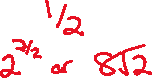 1/2
2^{2/2} or 8√2